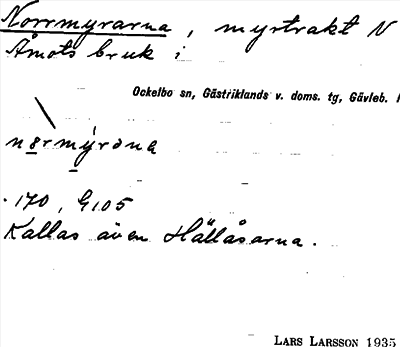 Norrmyrarna, myrtrakt N
Åmots bruk i
Ockelbo sn, Gästriklands v. doms. tg, Gävleb.
170, G105
Kallas även Hällåsarna.
LARS LARSSON 1935